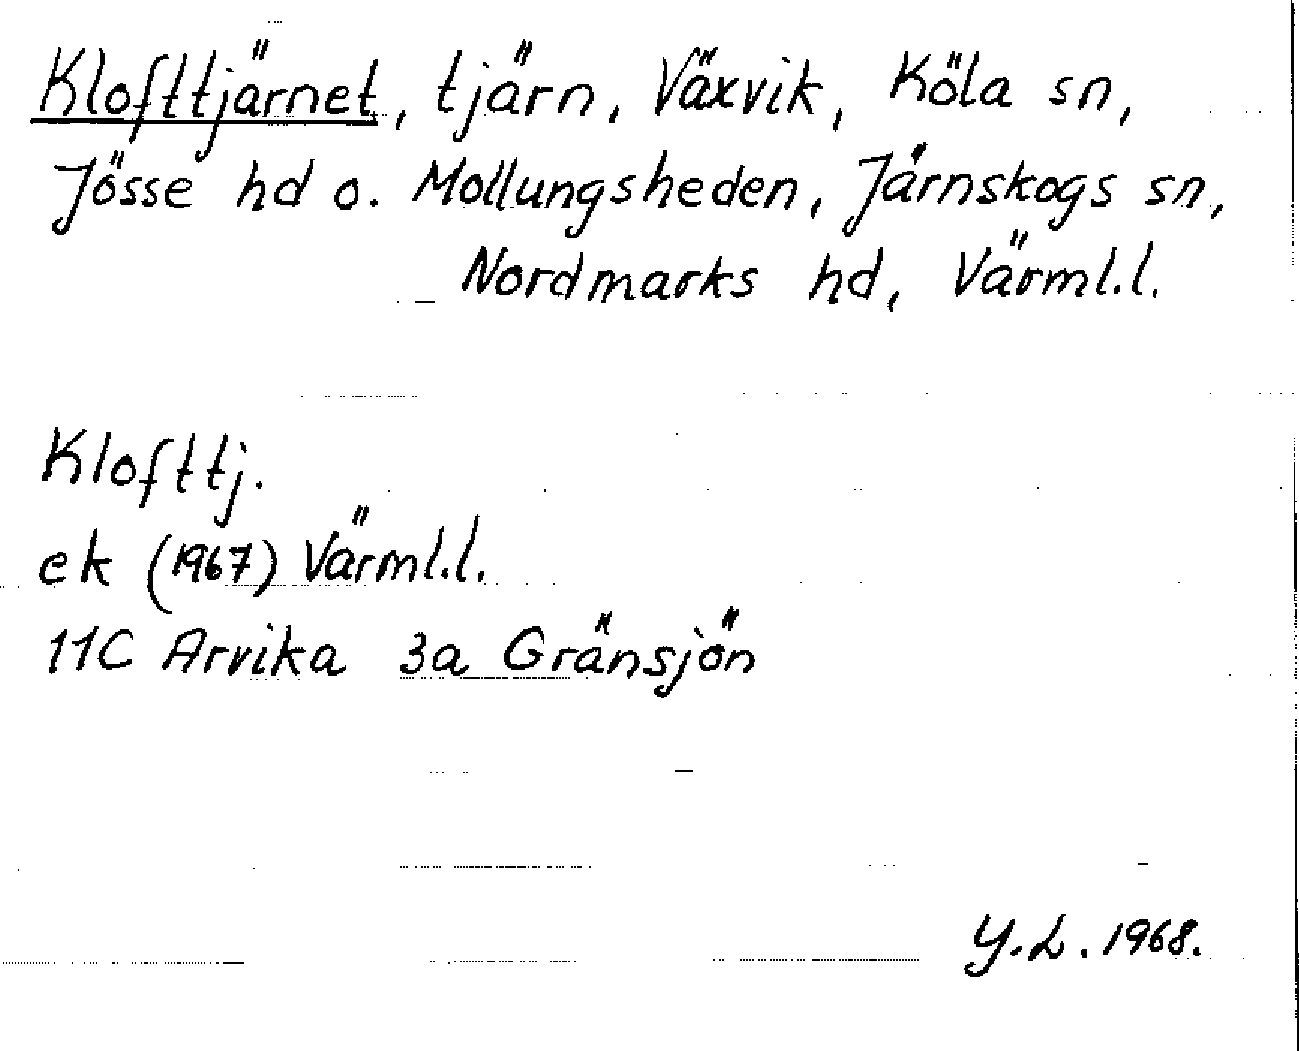 Klofttjärnet, tjärn, Växvik, Köla sn,
Jösse hd o. Mollungsheden, Järnskogs sn,
Nordmarks hd, Värml.l.
Klofttj.
ek (1967) Värml.l.
11C Arvika 3a Gränsjön
Y.L. 1968.